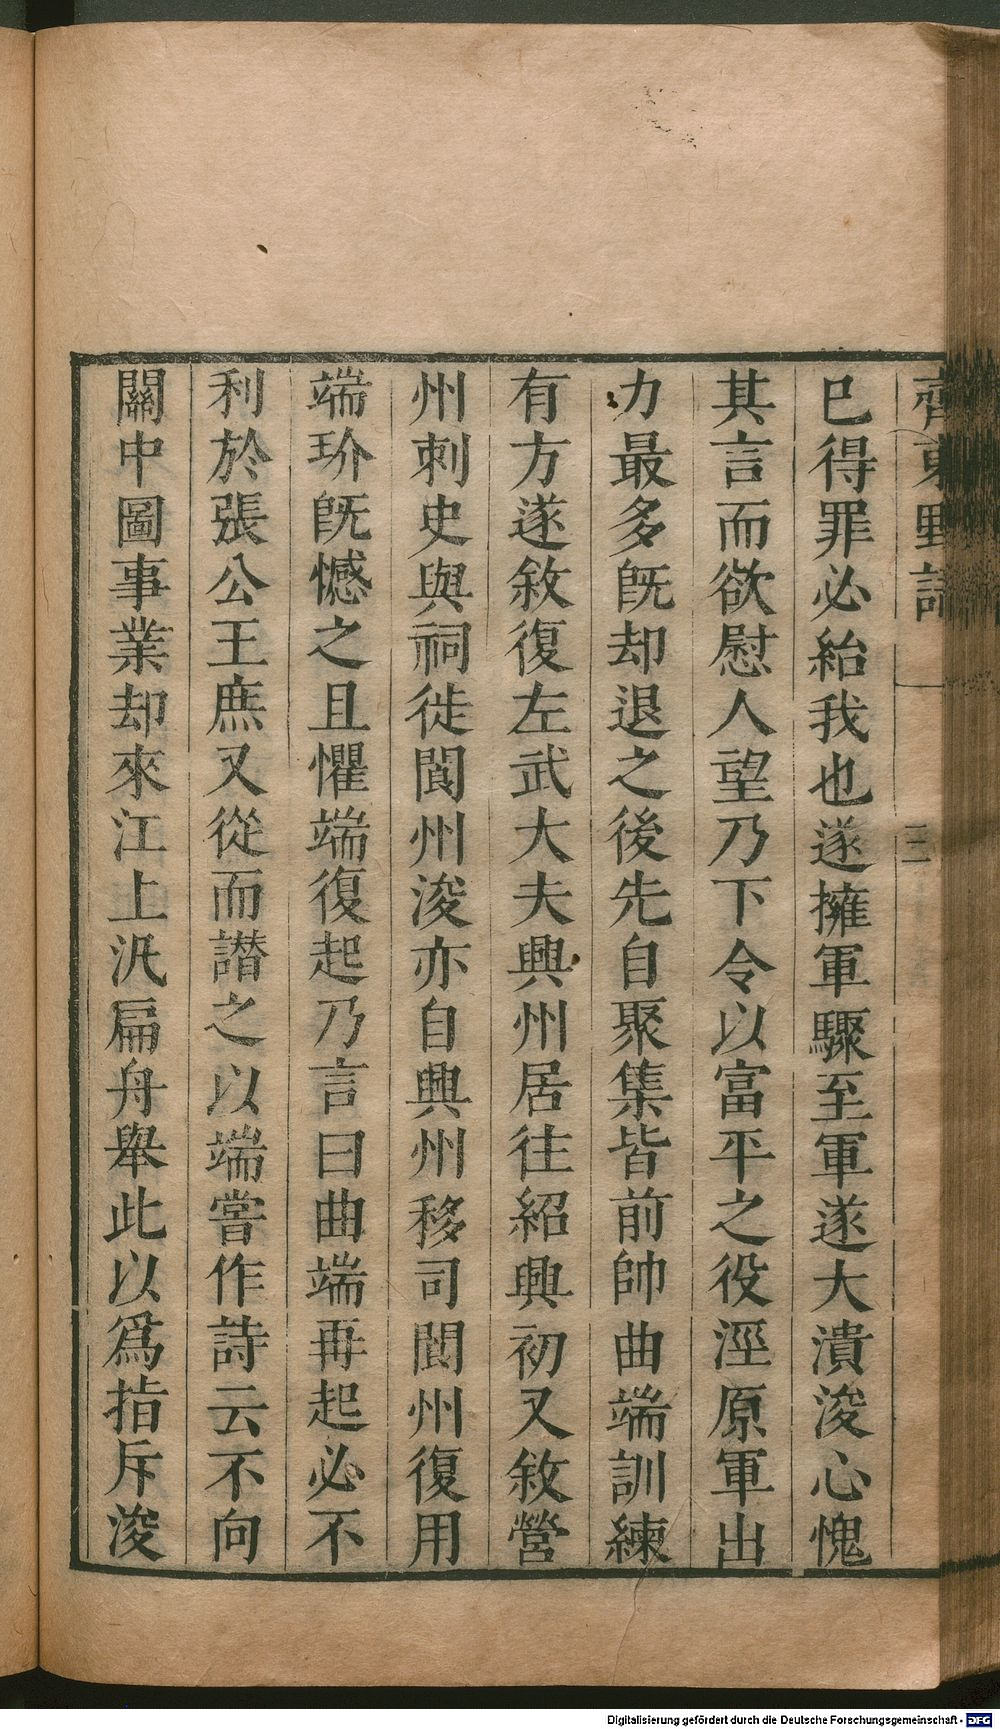 齊東野語
三
已得罪必紿我也遂擁軍驟至軍遂大潰浚心愧
其言而欲慰人望乃下令以富平之役涇原軍出
力最多旣却退之後先自聚集皆前帥曲端訓練
有方遂敘復左武大夫興州居住紹興初又敘營
州刺史與祠徙閬州浚亦自興州移司閬州復用
端玠旣憾之且懼端復起乃言曰曲端再起必不
利於張公王庶又從而譖之以端嘗作詩云不向
關中圖事業却來江上汎扁舟舉此以爲指斥浚
Digitalisierung gefördert durch die Deutsche Forschungsgemeinschaft - DFG